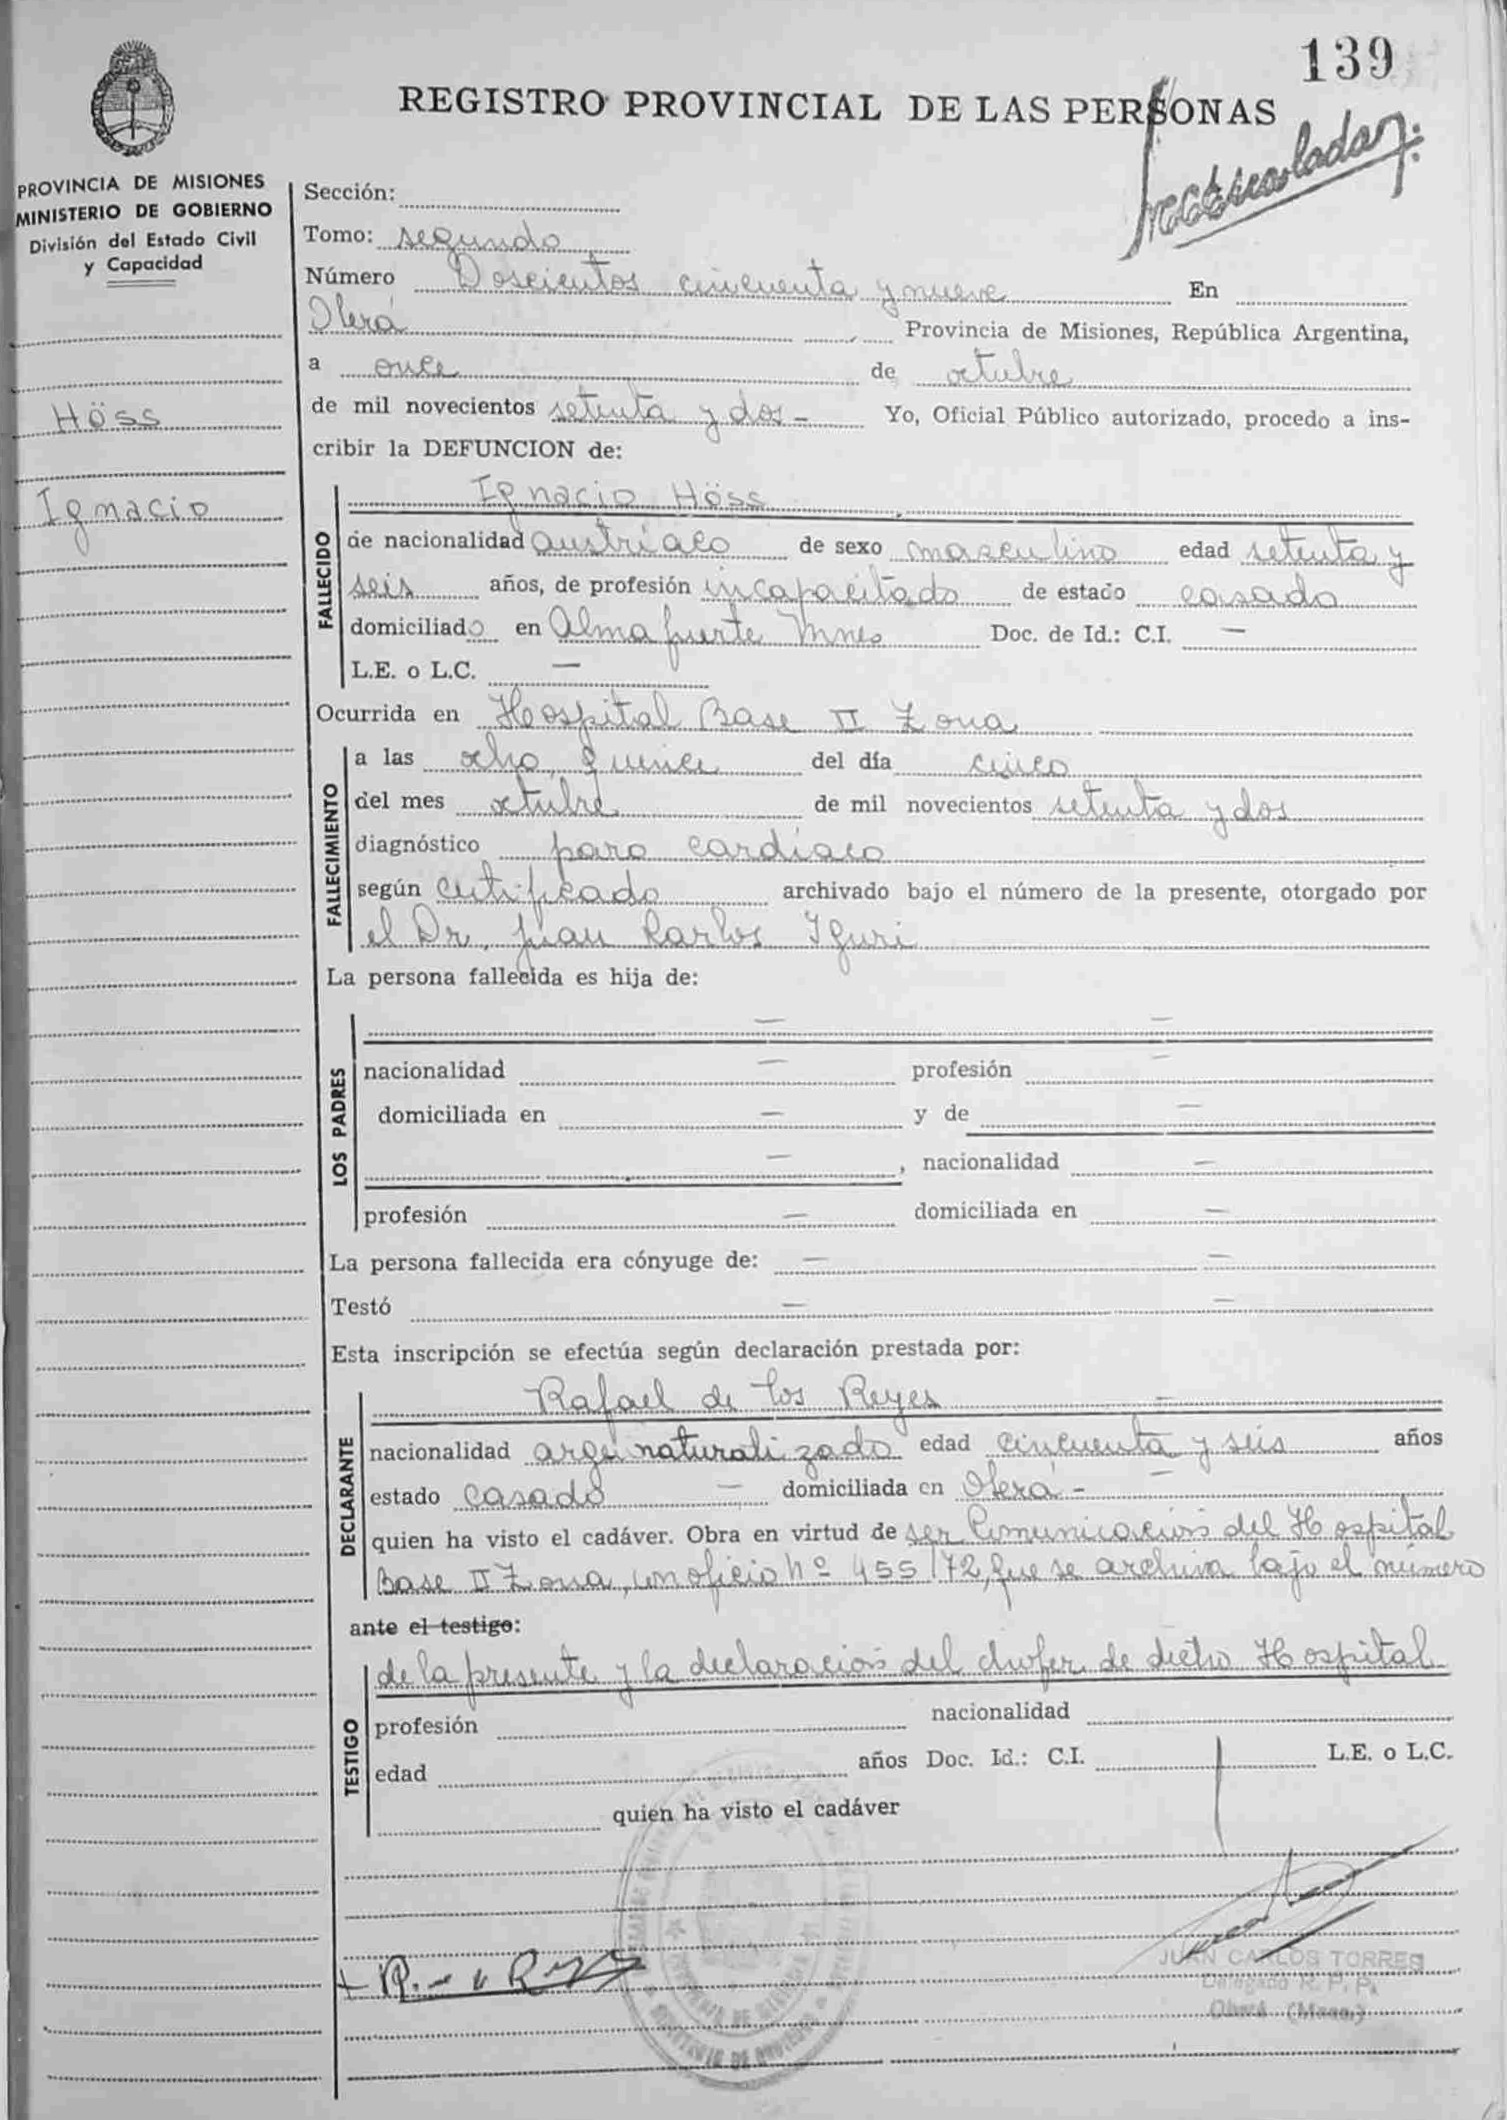 139
REGISTRO PROVINCIAL DE LAS PERSONAS
PROVINCIA DE MISIONES
MINISTERIO DE GOBIERNO
División del Estado Civil
y Capacidad
Höss
Ignacio
Sección:
Tomo: segundo
Número Doscientos cincuenta y nueve En
Oberá Provincia de Misiones, República Argentina,
a once de octubre
de mil novecientos setenta y dos - Yo, Oficial Público autorizado, procedo a ins-
cribir la DEFUNCION de:
FALLECIDO
Ignacio Höss
de nacionalidad austríaco de sexo masculino edad setenta y
seis años, de profesión incapacitado de estado casado
domiciliado en Almafuerte Mnes Doc. de Id.: C.I. —
L.E. o L.C. —
Ocurrida en Hospital Base II Zona
FALLECIMIENTO
a las ocho, quince del día cinco
del mes octubre de mil novecientos setenta y dos
diagnóstico paro cardíaco
según certificado archivado bajo el número de la presente, otorgado por
el Dr. Juan Carlos Iguri
La persona fallecida es hija de:
LOS PADRES
— —
nacionalidad — profesión —
domiciliada en — y de —
— , nacionalidad —
profesión — domiciliada en —
La persona fallecida era cónyuge de: — —
Testó — —
Esta inscripción se efectúa según declaración prestada por:
DECLARANTE
Rafael de los Reyes —
nacionalidad arg. naturalizado edad cincuenta y seis años
estado casado — domiciliada en Oberá - —
quien ha visto el cadáver. Obra en virtud de ser Comunicación del Hospital
Base II Zona, con oficio nº 455/72, que se archiva bajo el número
ante el testigo:
TESTIGO
de la presente y la declaración del chofer de dicho Hospital
profesión nacionalidad
edad años Doc. Id.: C.I. L.E. o L.C.
quien ha visto el cadáver
JUAN CARLOS TORRES
Delegado R. P. P.
Oberá (Mnes.)